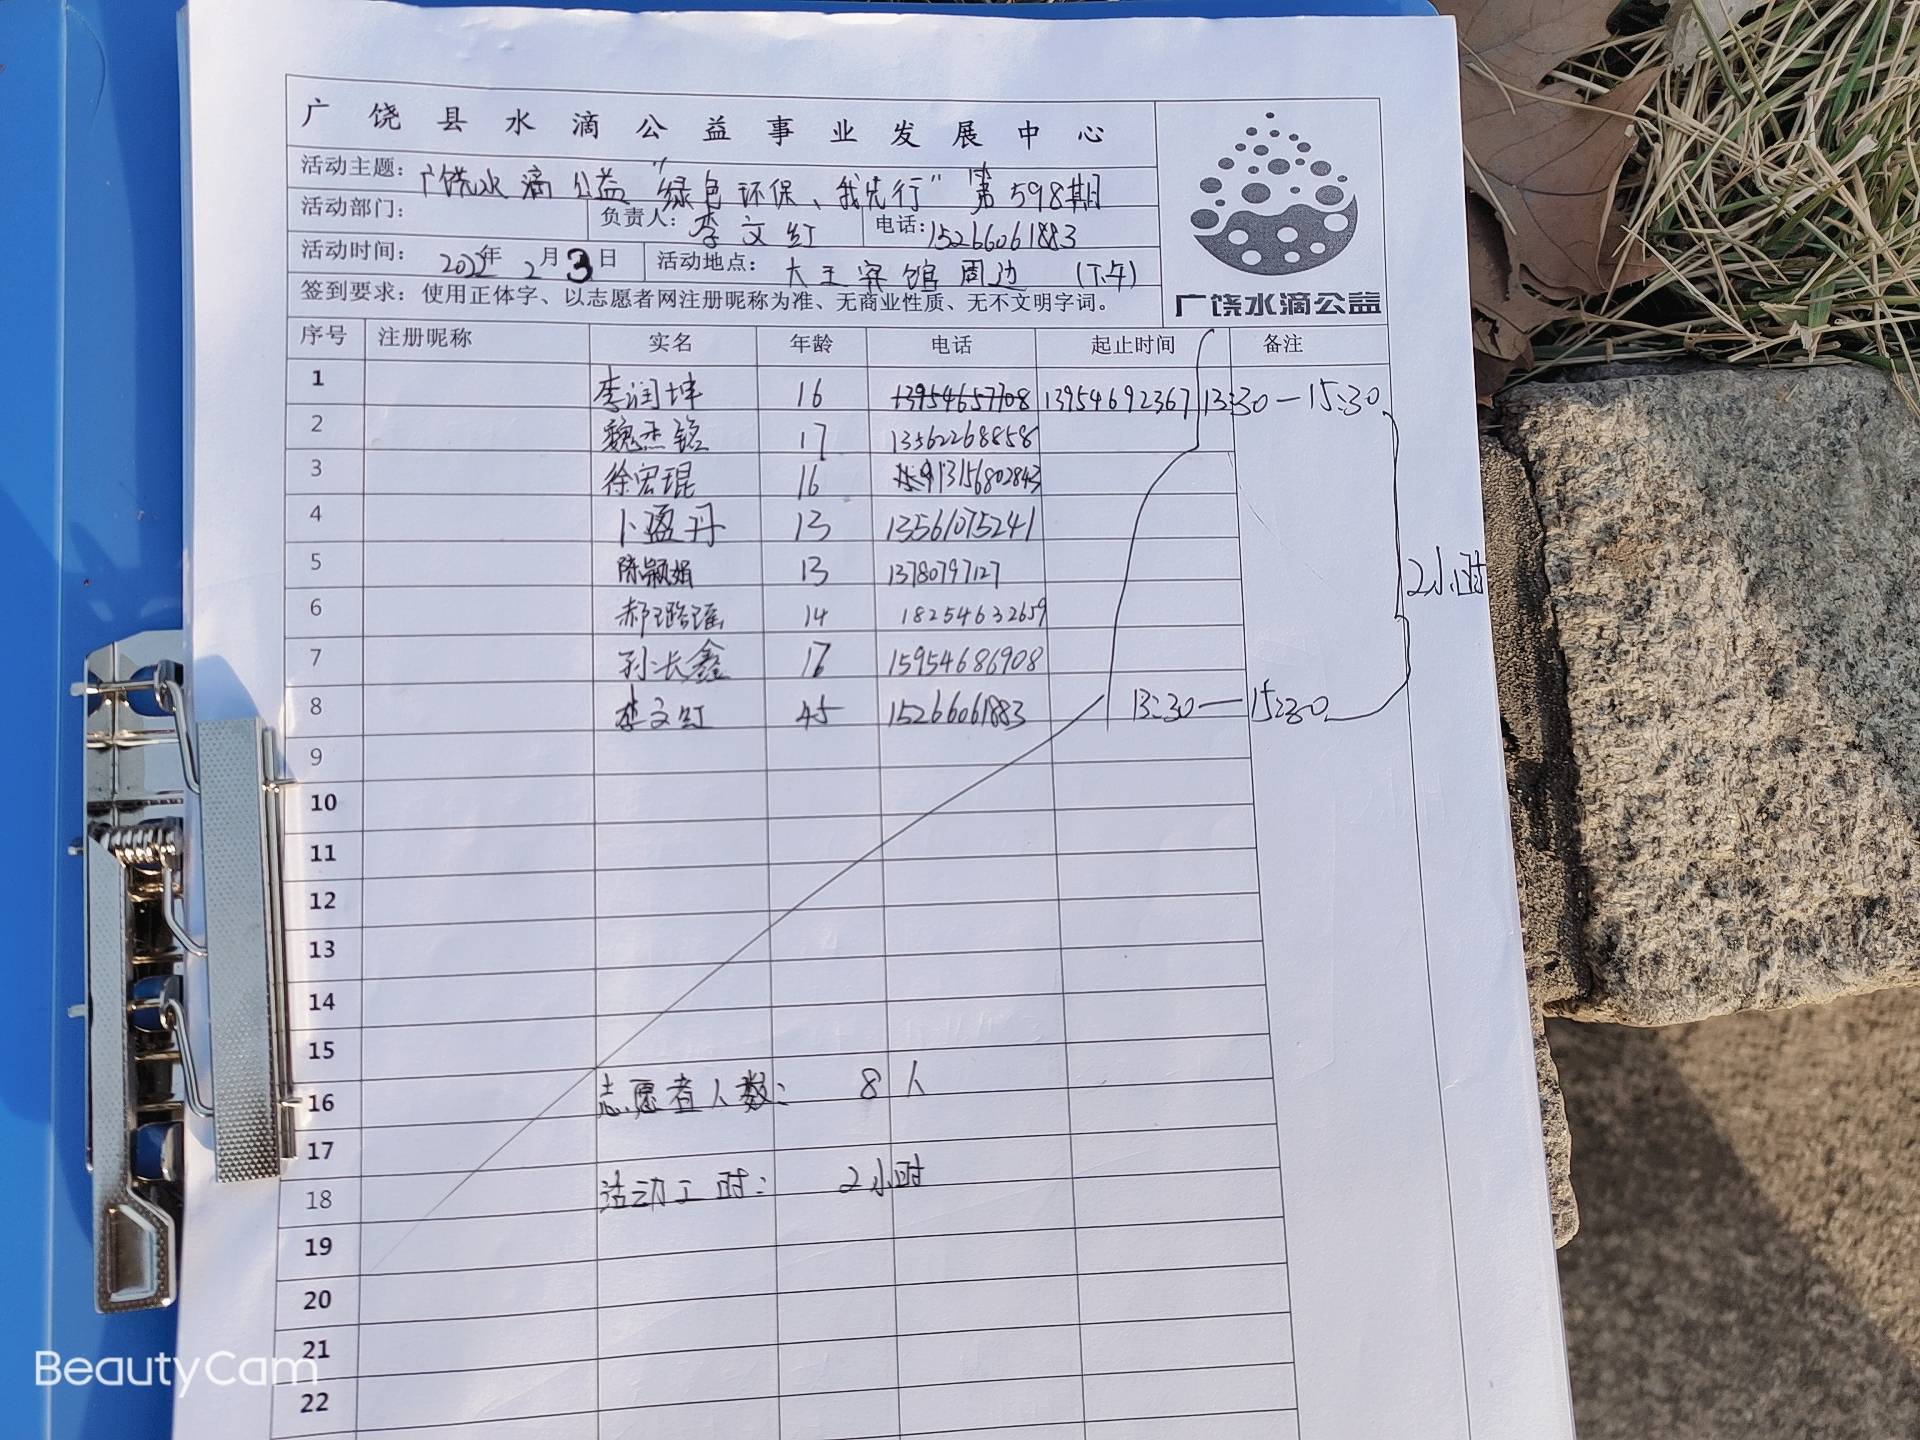 广饶县水滴公益事业发展中心
活动主题：广饶水滴公益"绿色环保、我先行"第598期
活动部门： 负责人：李文红 电话：15266061883
活动时间：2022年2月3日 活动地点：大王宾馆周边（下午）
签到要求：使用正体字、以志愿者网注册昵称为准、无商业性质、无不文明字词。
广饶水滴公益
序号 注册昵称 实名 年龄 电话 起止时间 备注
1 李润坤 16 13954657708 13954692367 13:30—15:30
2 魏杰铭 17 13562268858
3 徐宏琨 16 13156802843
4 卜盈丹 13 13561075241
5 陈颖娟 13 13780797127
2小时
6 郝璐瑶 14 18254632659
7 孙长鑫 16 15954686908
8 李文红 45 15266061883 13:30—15:30
9
10
11
12
13
14
15
16 志愿者人数：8人
17
18 活动工时：2小时
19
20
21
22
BeautyCam